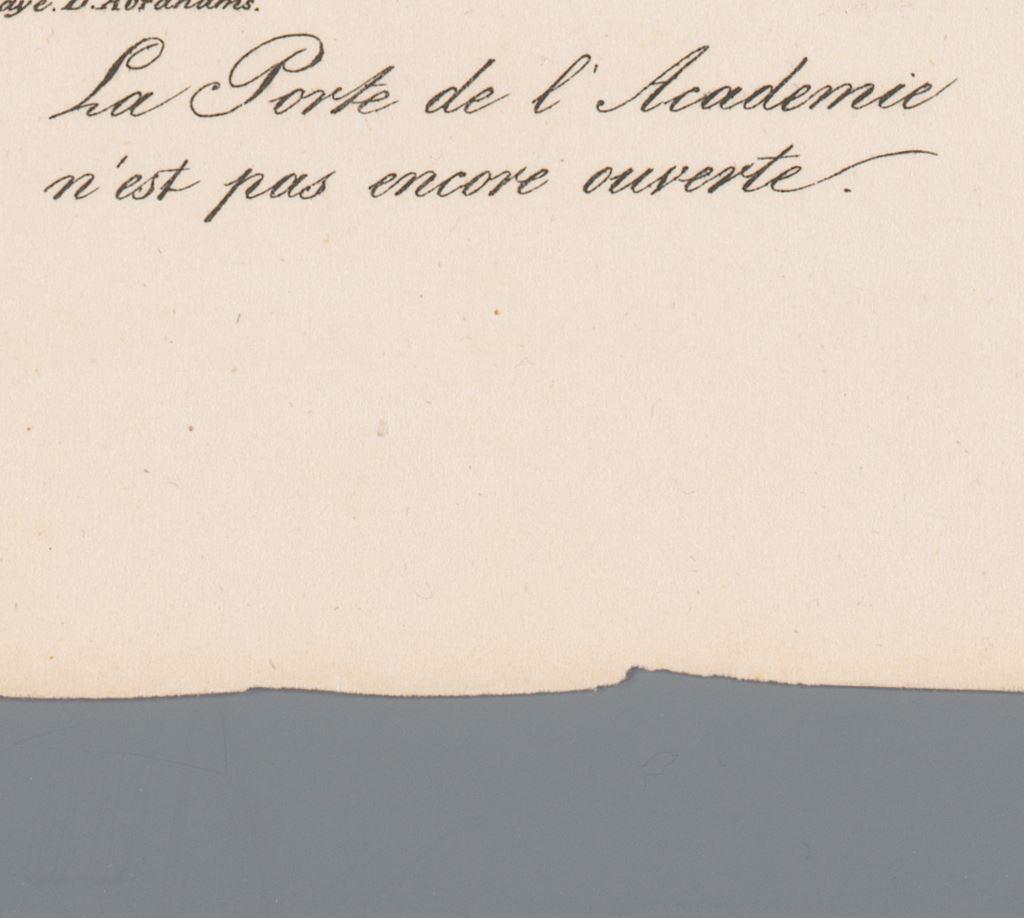 D. Abrahams.
La Porte de l'Academie
n'est pas encore ouverte.